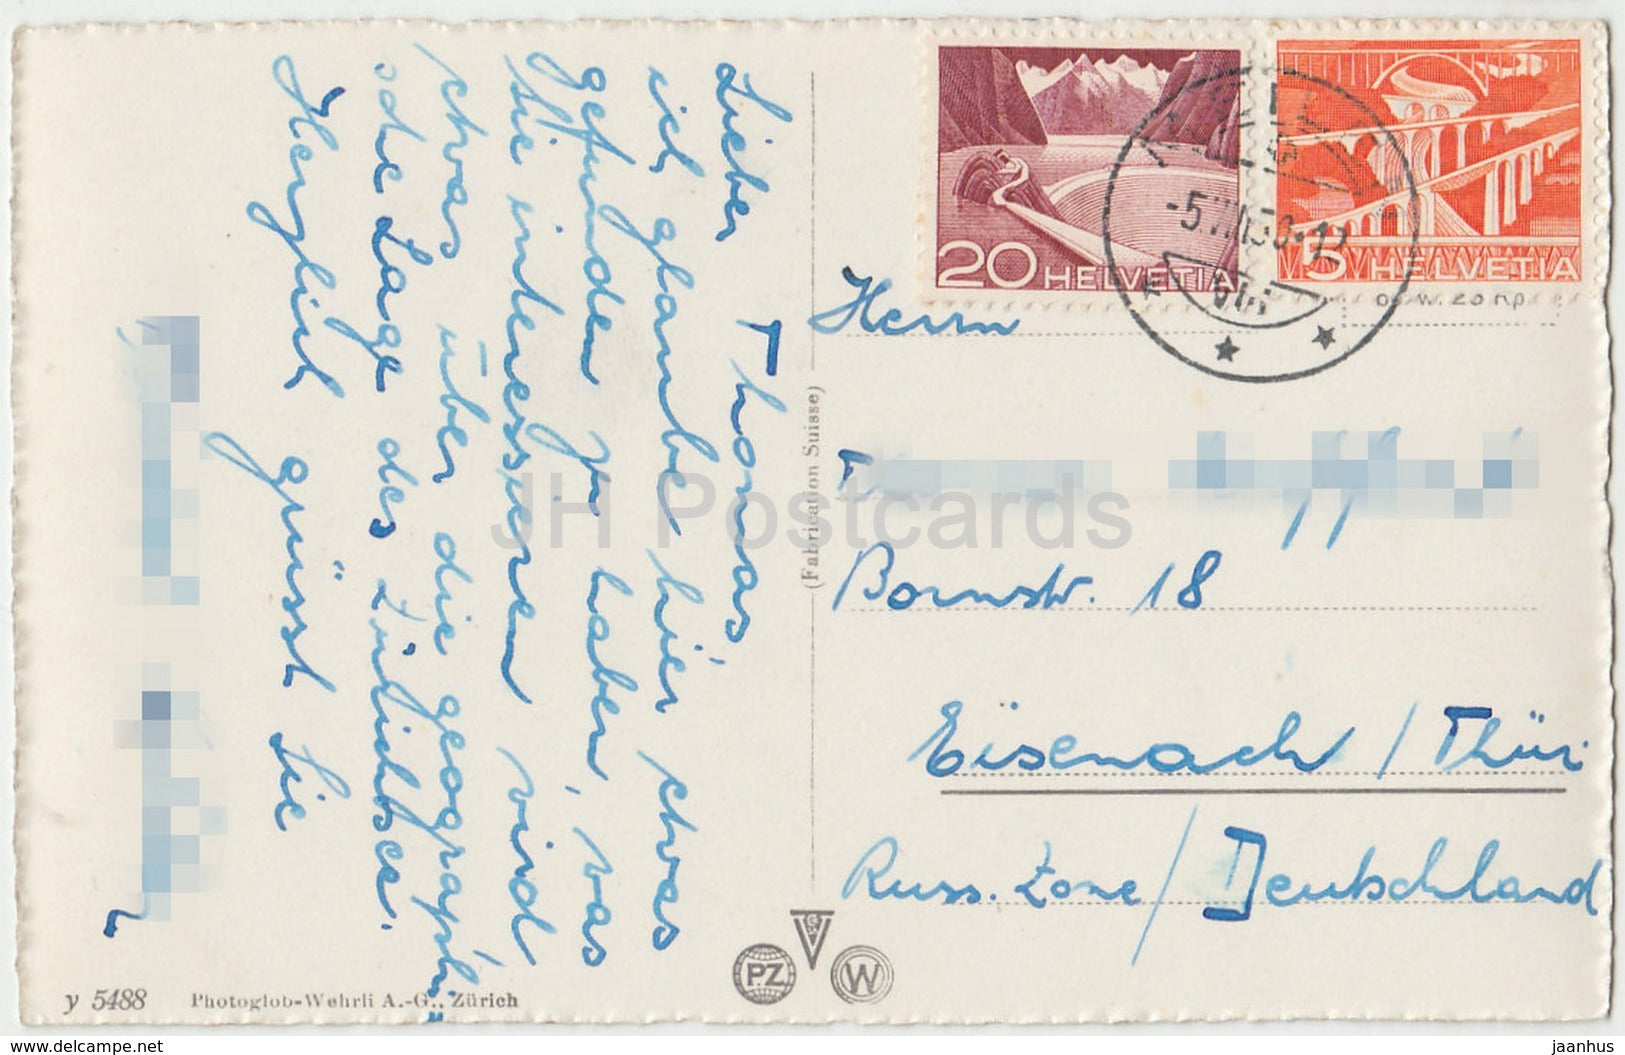 Lieber Thomas
ich glaube hier etwas
gefunden zu haben, was
Sie interessieren wird
etwas über die geographi
sche Lage des Zürichsees.
Herzlich grüsst Sie
20 HELVETIA
5 HELVETIA
-5.VIII.50-12
VIII
Herrn
Bornstr. 18
Eisenach / Thür.
Russ. Zone / Deutschland
(Fabrication Suisse)
JH Postcards
PZ
W
y 5488 Photoglob-Wehrli A.-G., Zürich
www.delcampe.net
jaanhus